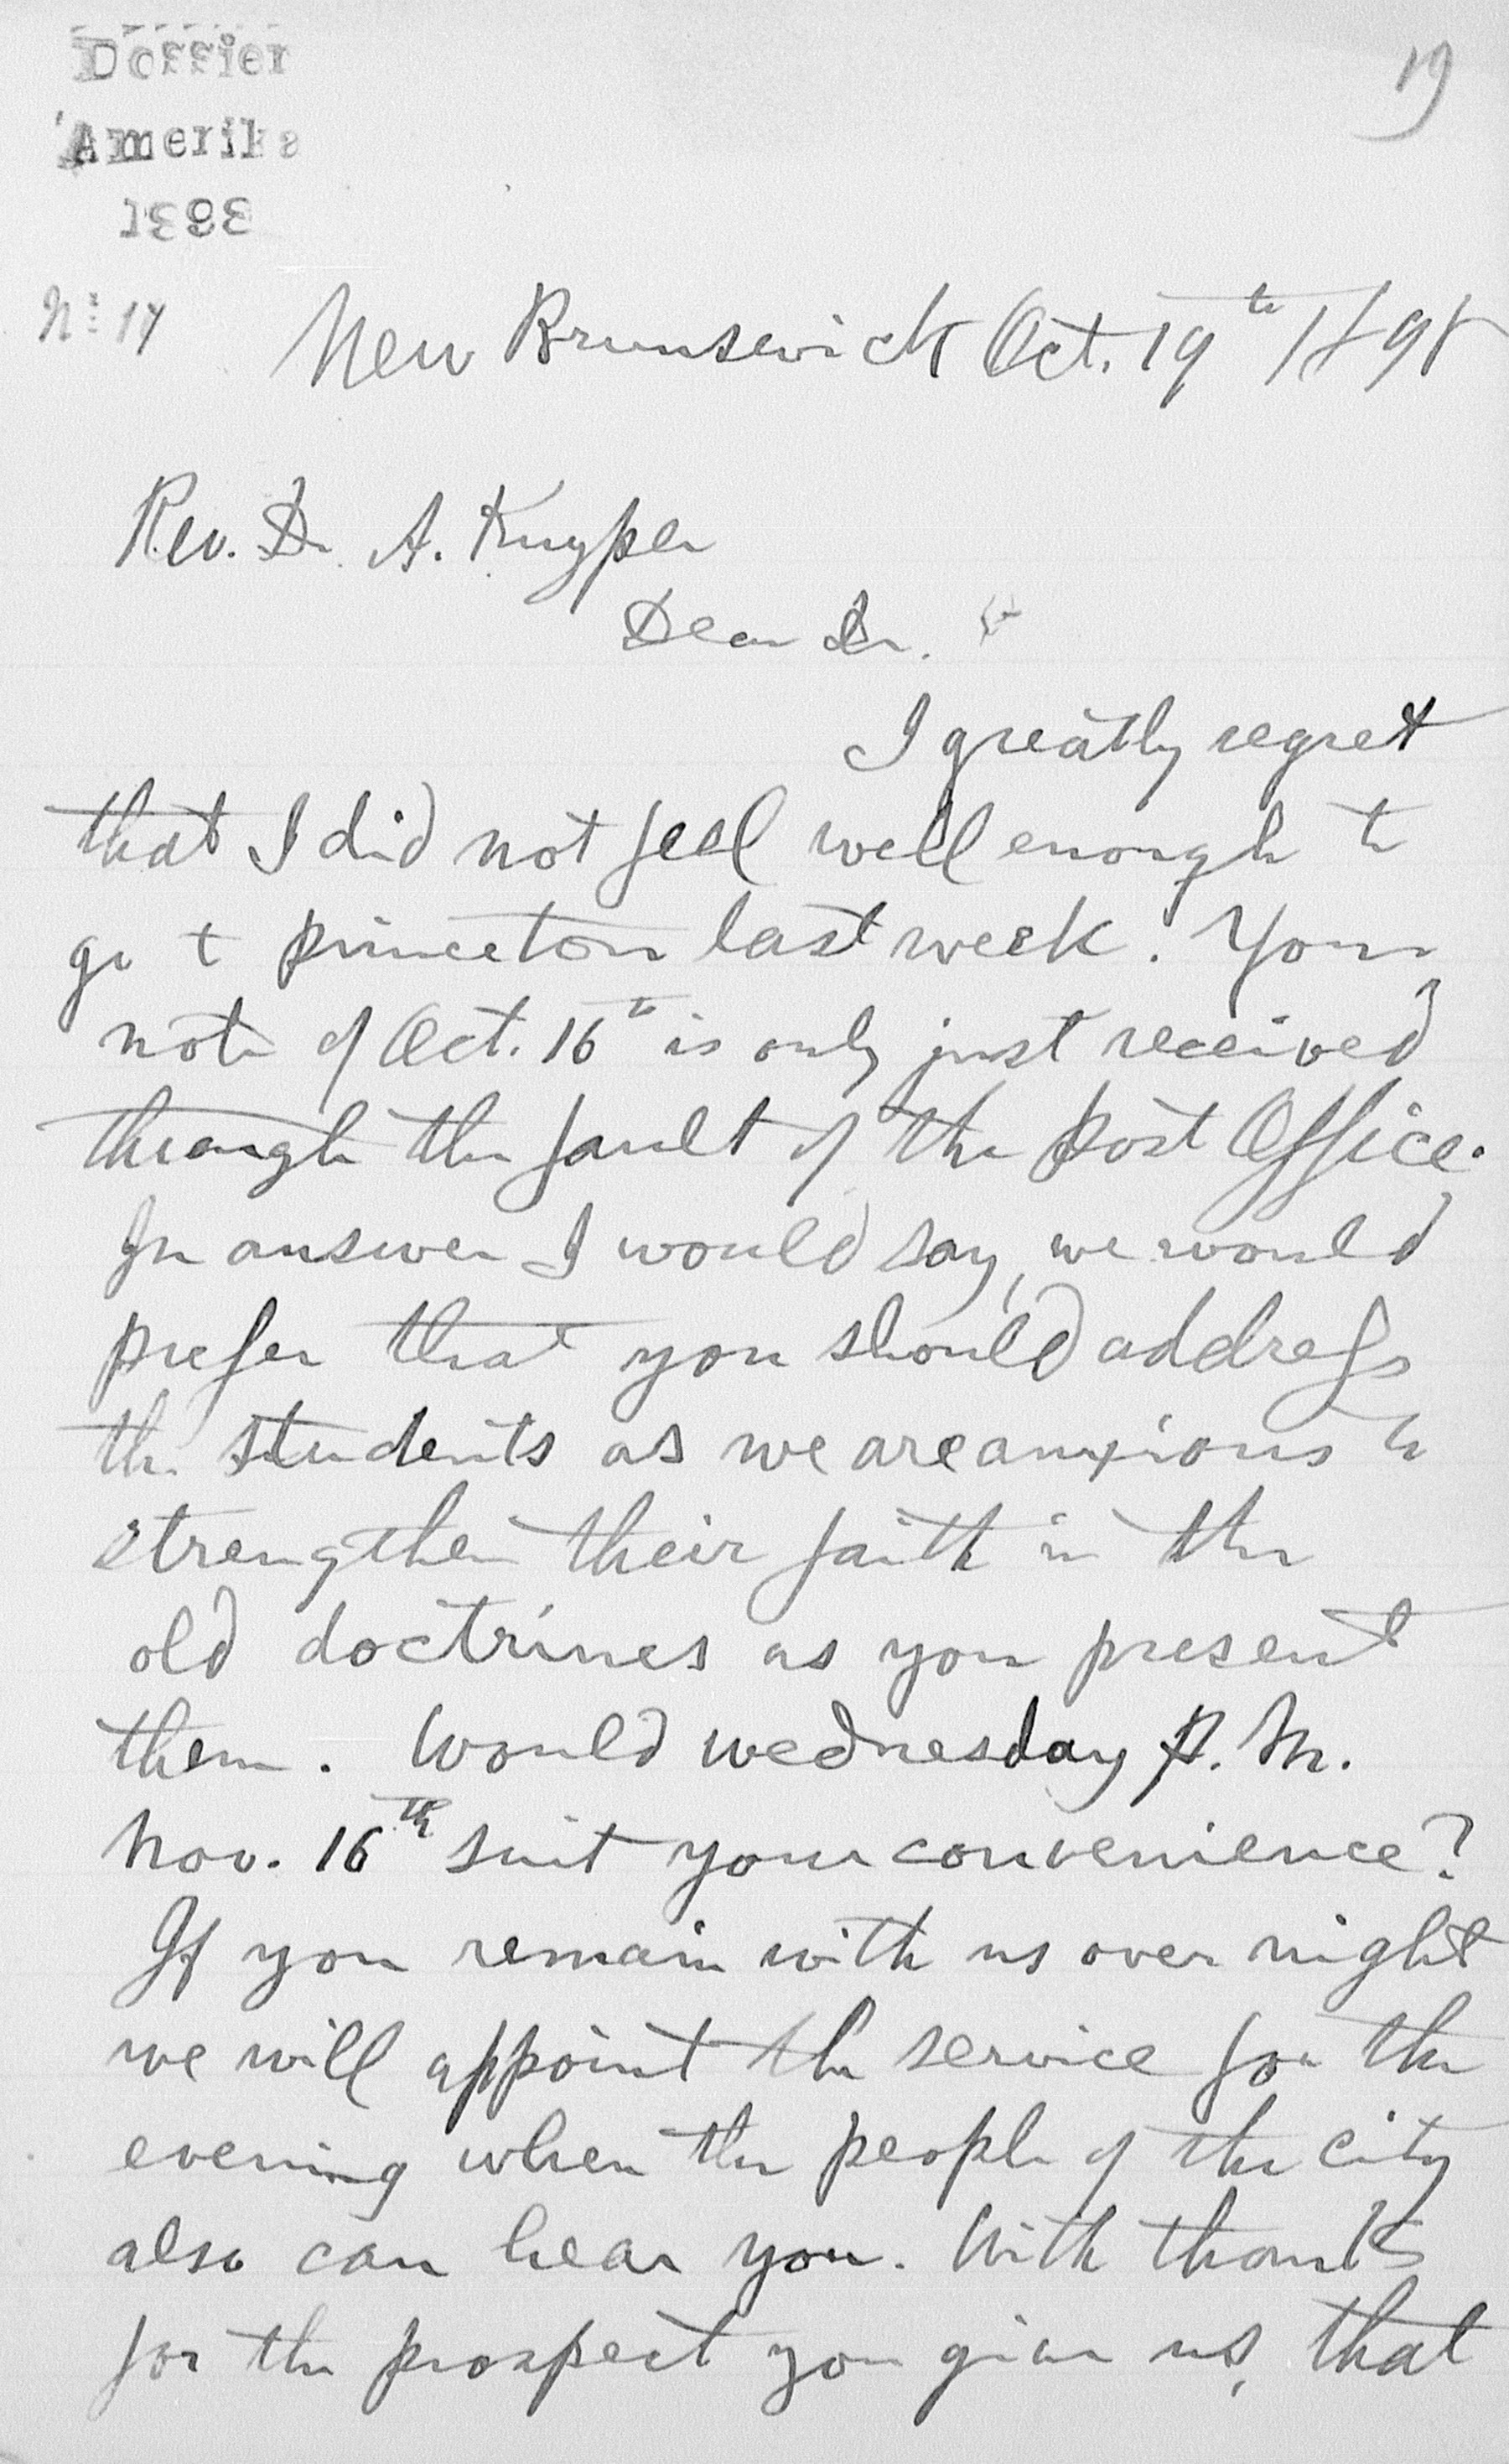 Dossier
Amerika
1898
19
No: 17
New Brunswick Oct. 19th 1898
Rev. Dr. A. Kuyper
Dear Dr.
I greatly regret
that I did not feel well enough to
go to Princeton last week. Your
note of Oct. 16th is only just received
through the fault of the Post Office.
In answer I would say, we would
prefer that you should address
the students as we are anxious to
strengthen their faith in the
old doctrines as you present
them. Would Wednesday P. M.
Nov. 16th suit your convenience?
If you remain with us over night
we will appoint the service for the
evening when the people of the city
also can hear you. With thanks
for the prospect you give us, that